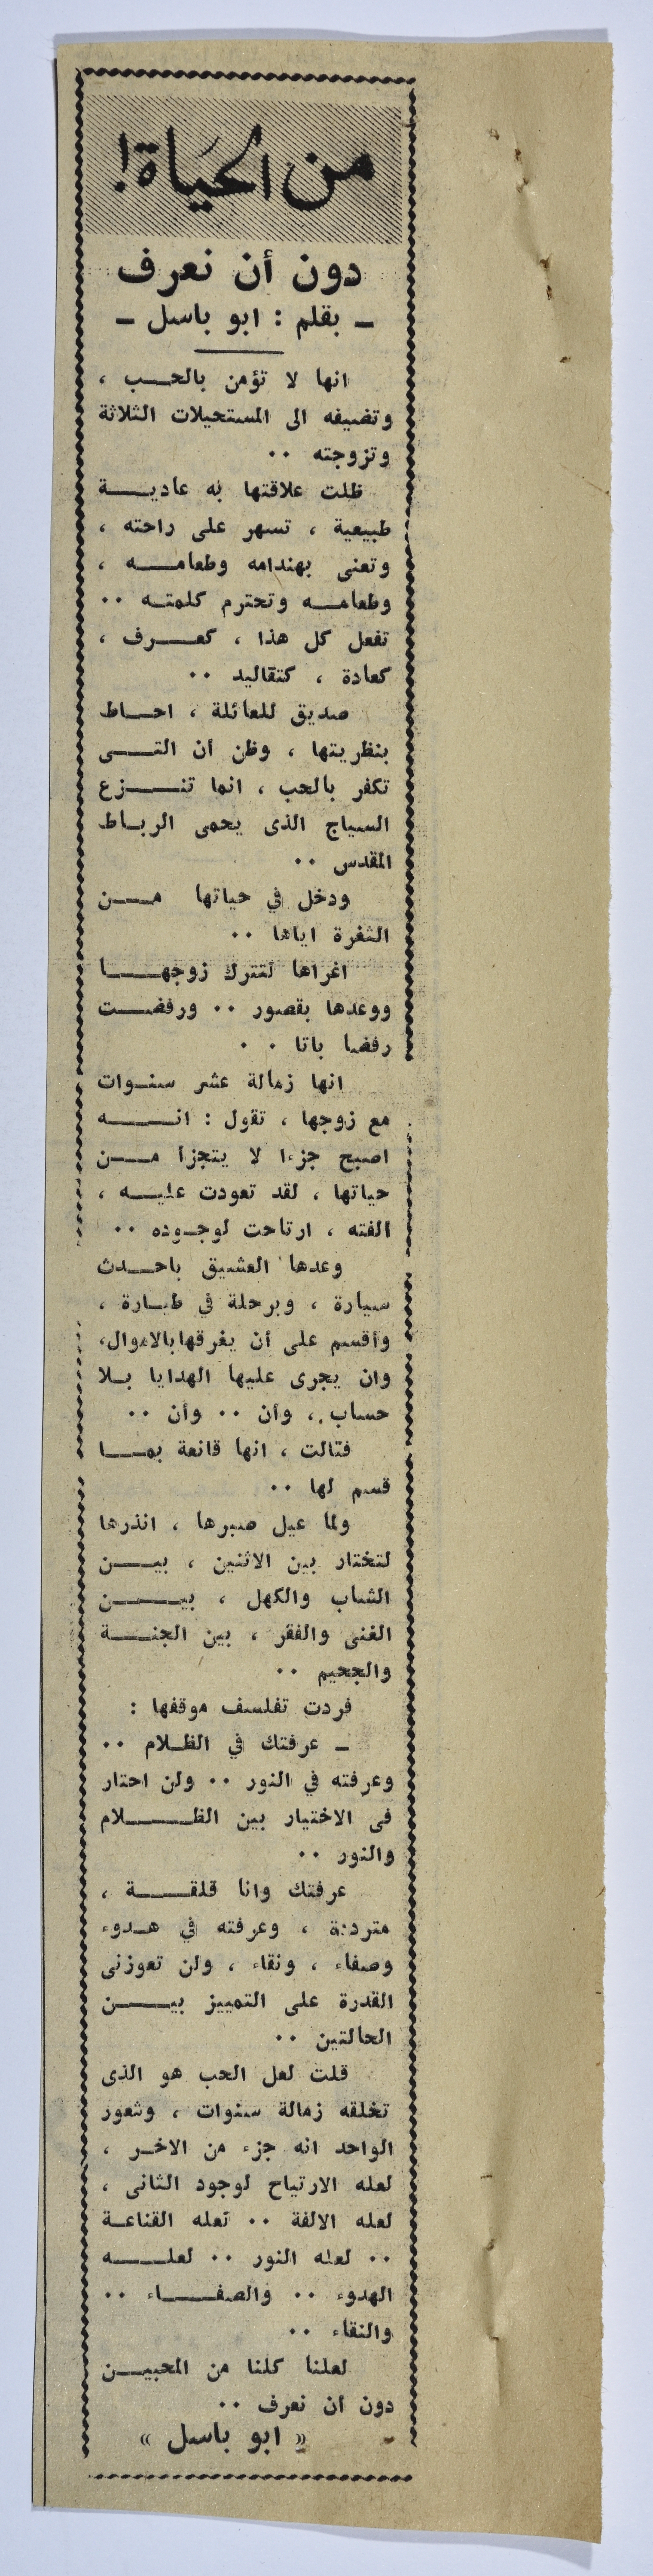 من الحَيَاة!
دون أن نعرف
ـ بقلم : ابو باسل ـ
انها لا تؤمن بالحب ،
وتضيفه الى المستحيلات الثلاثة
وتزوجته ٠٠
ظلت علاقتها به عادية
طبيعية ، تسهر على راحته ،
وتعنى بهندامه وطعامه ،
وطعامه وتحترم كلمته ٠٠
تفعل كل هذا ، كعرف ،
كعادة ، كتقاليد ٠٠
صديق للعائلة ، احاط
بنظريتها ، وظن ان التى
تكفر بالحب ، انما تنزع
السياج الذى يحمى الرباط
المقدس ٠٠
ودخل في حياتها من
الثغرة اياها ٠٠
اغراها لتترك زوجها
ووعدها بقصور ٠٠ ورفضت
رفضا باتا ٠ ٠
انها زمالة عشر سنوات
مع زوجها ، تقول : انه
اصبح جزءا لا يتجزأ من
حياتها ، لقد تعودت عليه ،
الفته ، ارتاحت لوجوده ٠٠
وعدها العشيق باحدث
سيارة ، وبرحلة في طيارة ،
وأقسم على أن يغرقها بالاموال،
وان يجرى عليها الهدايا بلا
حساب ، وأن ٠٠ وأن ٠٠
فتالت ، انها قانعة بما
قسم لها ٠٠
ولما عيل صبرها ، انذرها
لتختار بين الاثنين ، بين
الشاب والكهل ، بين
الغنى والفقر ، بين الجنة
والجحيم ٠٠
فردت تفلسف موقفها :
ـ عرفتك في الظلام ٠٠
وعرفته في النور ٠٠ ولن احتار
فى الاختيار بين الظلام
والنور ٠٠
عرفتك وانا قلقة ،
مترددة ، وعرفته في هدوء
وصفاء ، ونقاء ، ولن تعوزنى
القدرة على التمييز بين
الحالتين ٠٠
قلت لعل الحب هو الذى
تخلقه زمالة سنوات ، وشعور
الواحد انه جزء من الاخر ،
لعله الارتياح لوجود الثانى ،
لعله الالفة ٠٠ لعله القناعة
٠٠ لعله النور ٠٠ لعله
الهدوء ٠٠ والصفاء ٠٠
والنقاء ٠٠
لعلنا كلنا من المحبين
دون ان نعرف ٠٠
« ابو باسل »